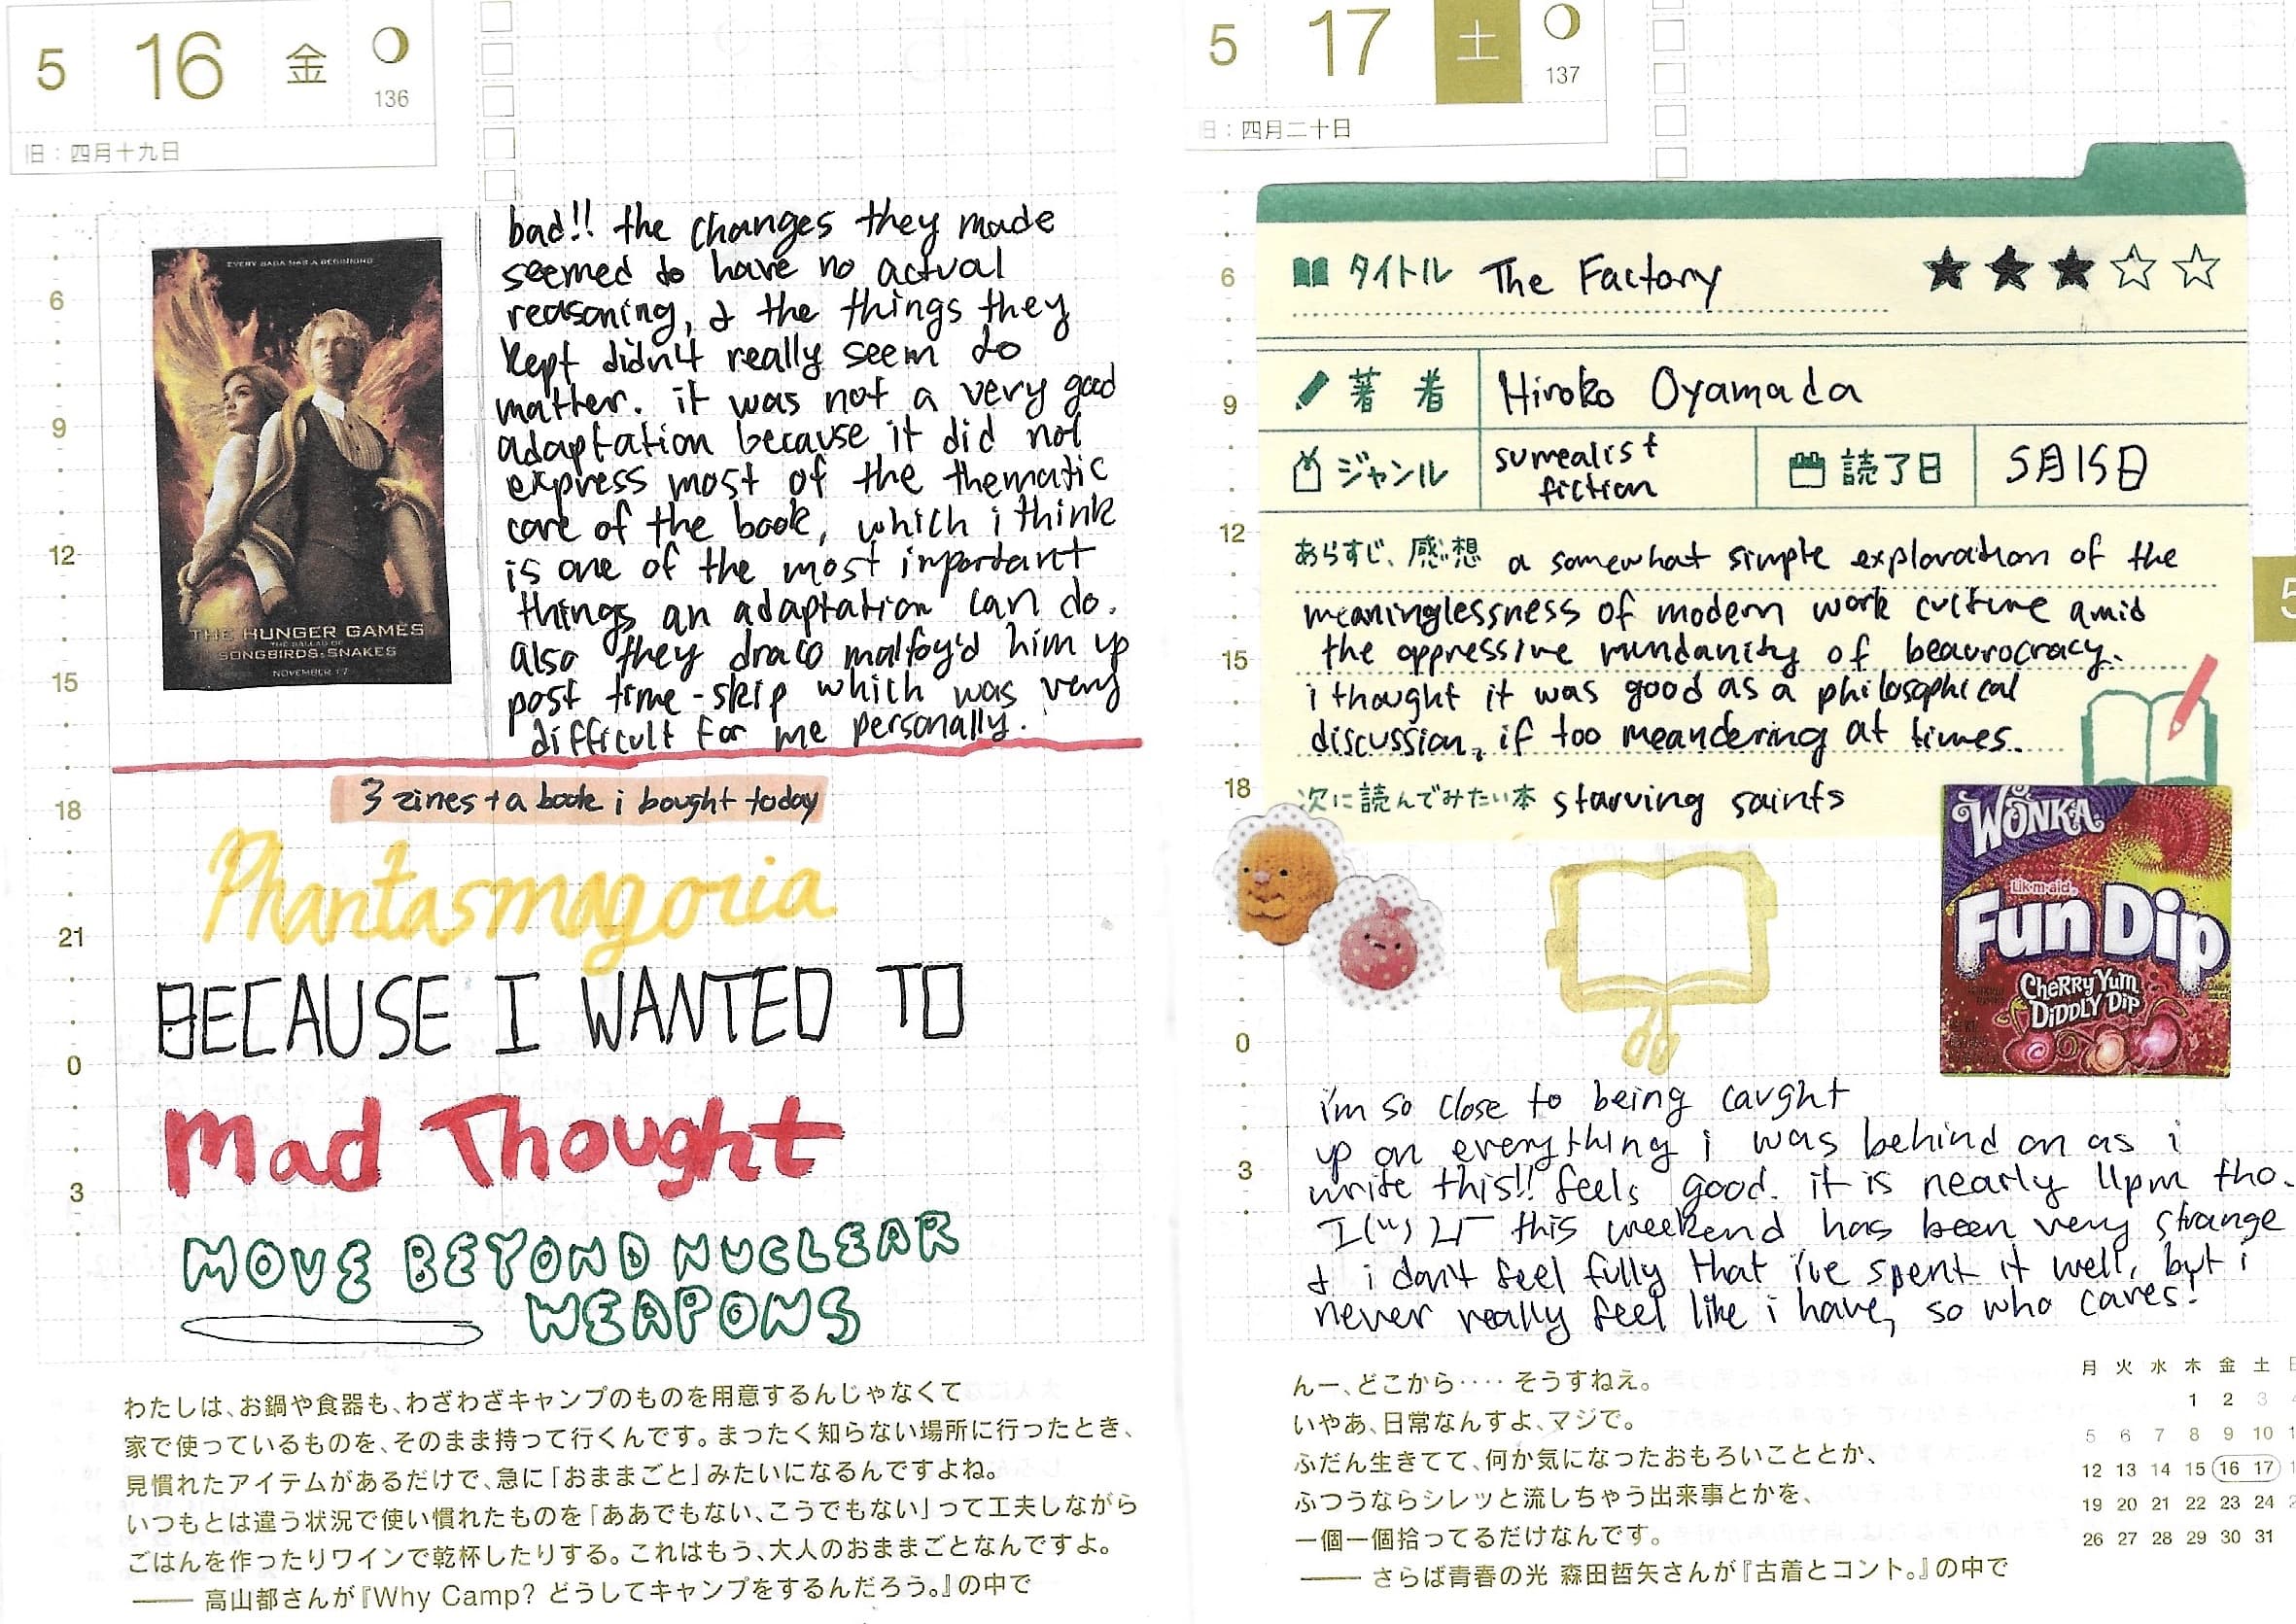 5 16 金
136
旧：四月十九日
EVERY SAGA HAS A BEGINNING
THE HUNGER GAMES
THE BALLAD OF
SONGBIRDS & SNAKES
NOVEMBER 17
bad!! the changes they made
seemed to have no actual
reasoning, & the things they
kept didn't really seem to
matter. it was not a very good
adaptation because it did not
express most of the thematic
core of the book, which i think
is one of the most important
things an adaptation can do.
also they draco malfoy'd him up
post time-skip which was very
difficult for me personally.
6
9
12
15
18
21
0
3
3 zines + a book i bought today
Phantasmagoria
BECAUSE I WANTED TO
Mad Thought
MOVE BEYOND NUCLEAR
WEAPONS
わたしは、お鍋や食器も、わざわざキャンプのものを用意するんじゃなくて
家で使っているものを、そのまま持って行くんです。まったく知らない場所に行ったとき、
見慣れたアイテムがあるだけで、急に「おままごと」みたいになるんですよね。
いつもとは違う状況で使い慣れたものを「ああでもない、こうでもない」って工夫しながら
ごはんを作ったりワインで乾杯したりする。これはもう、大人のおままごとなんですよ。
―― 高山都さんが『Why Camp? どうしてキャンプをするんだろう。』の中で
5 17 土
137
旧：四月二十日
タイトル The Factory
著者 Hiroko Oyamada
ジャンル surrealist fiction 読了日 5月15日
あらすじ、感想 a somewhat simple exploration of the
meaninglessness of modern work culture amid
the oppressive mundanity of beaurocracy.
i thought it was good as a philosophical
discussion, if too meandering at times.
次に読んでみたい本 starving saints
6
9
12
15
18
0
3
5
WONKA
Lik-m-aid
Fun Dip
CHERRY YUM
DIDDLY DIP
i'm so close to being caught
up on everything i was behind on as i
write this!! feels good. it is nearly 11pm tho.
this weekend has been very strange
& i don't feel fully that i've spent it well, but i
never really feel like i have, so who cares!
んー、どこから‥‥そうすねえ。
いやあ、日常なんすよ、マジで。
ふだん生きてて、何か気になったおもろいこととか、
ふつうならシレッと流しちゃう出来事とかを、
一個一個拾ってるだけなんです。
―― さらば青春の光 森田哲矢さんが『古着とコント。』の中で
月 火 水 木 金 土
1 2 3
5 6 7 8 9 10
12 13 14 15 16 17
19 20 21 22 23 24
26 27 28 29 30 31